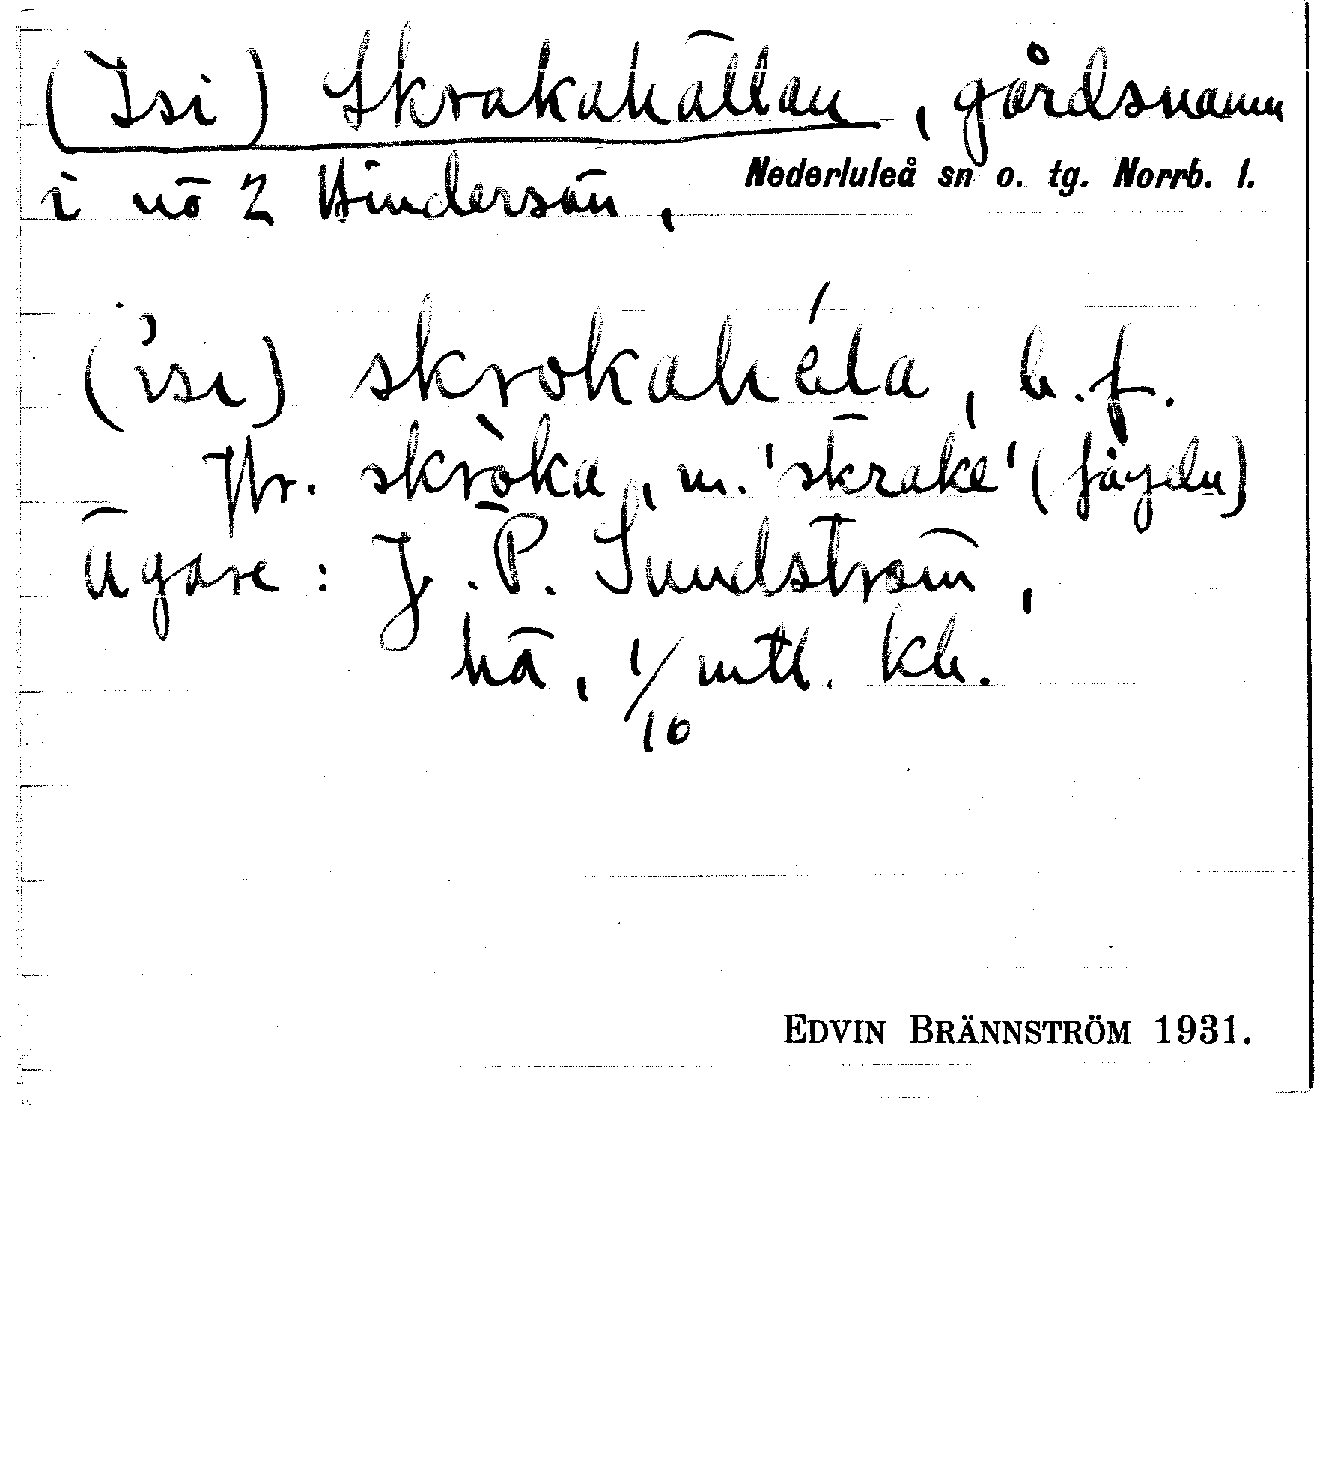 (Isi) Skrakahällan, gårdsnamn
i nö 2 Hindersön, Nederluleå sn o. tg. Norrb. l.
( isi) skrokahéla, b.f.
Jfr. skròka, m. 'skrake' (fågeln)
Ägare: J. P. Sundström,
hä, 1/10 mtl. kh.
EDVIN BRÄNNSTRÖM 1931.